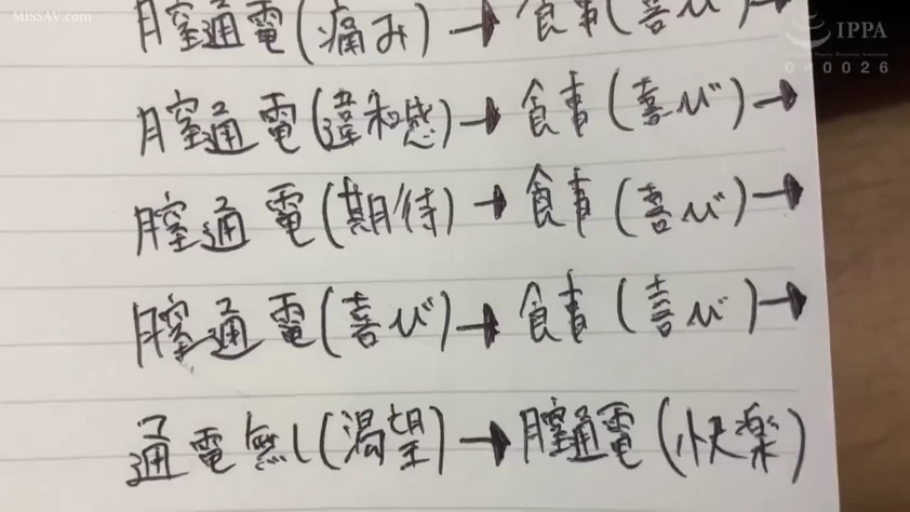 MISSAV.COM
IPPA
040026
膣通電(痛み)→食事(喜び)→
膣通電(違和感)→食事(喜び)→
膣通電(期待)→食事(喜び)→
膣通電(喜び)→食事(喜び)→
通電無し(渇望)→膣通電(快楽)